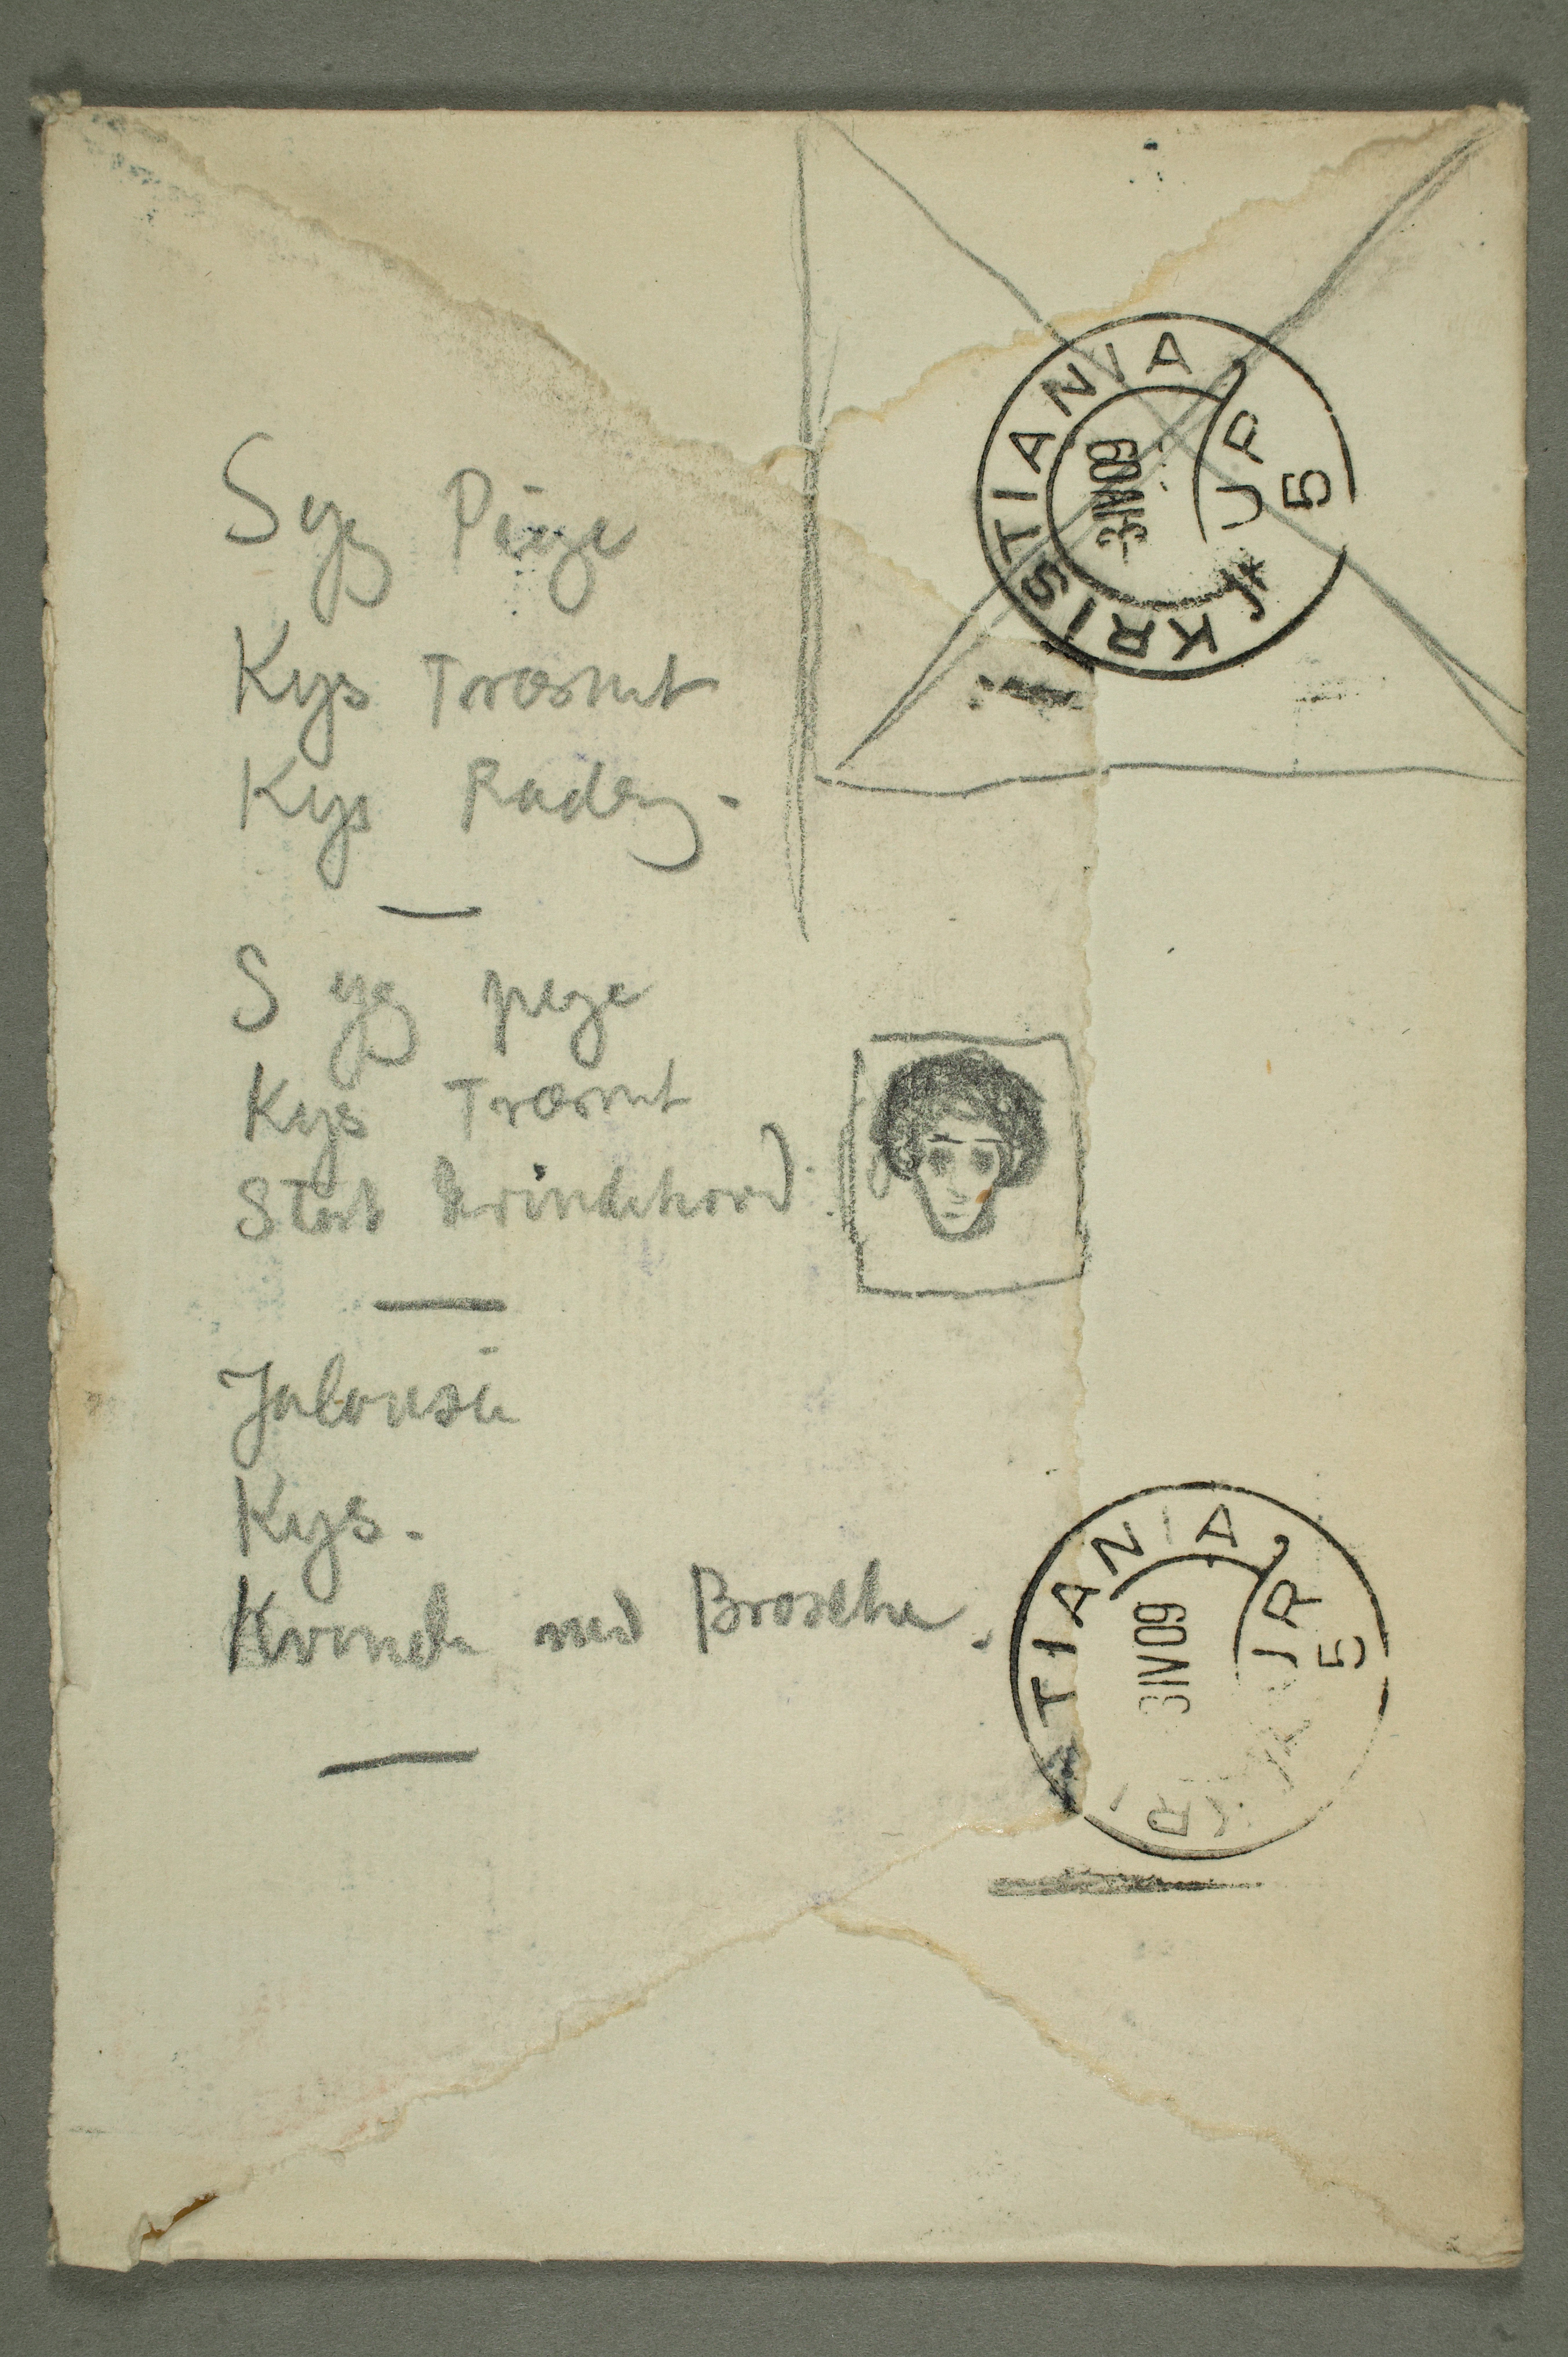 Syg Pige
Kys Træsnit
Kys Raderg.
Syg pige
Kys Træsnit
Stort Kvindehoved
Jalousi
Kys.
Kvinde med Brosche.
KRISTIANIA
3 IV 09
5
KRISTIANIA
3 IV 09
5